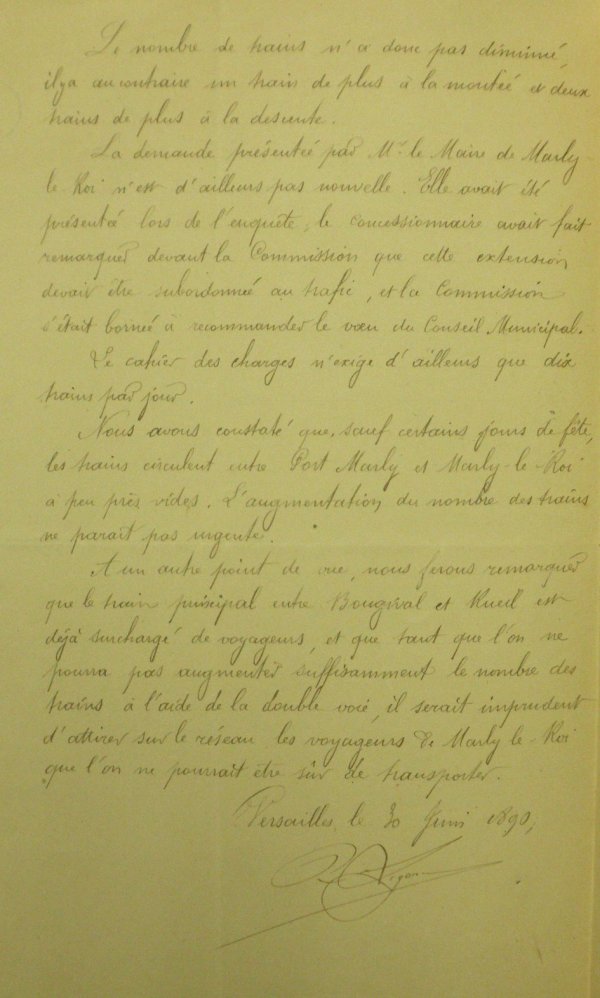 Le nombre de trains n'a donc pas diminué,
il y a au contraire un train de plus à la montée et deux
trains de plus à la descente.
La demande présentée par Mr. le Maire de Marly-
le-Roi n'est d'ailleurs pas nouvelle. Elle avait été
présentée lors de l'enquête, le concessionnaire avait fait
remarquer devant la Commission que cette extension
devait être subordonnée au trafic, et la Commission
s'était bornée à recommander le vœu du Conseil Municipal.
Le cahier des charges n'exige d'ailleurs que dix
trains par jour.
Nous avons constaté que, sauf certains jours de fête,
les trains circulent entre Port Marly et Marly-le-Roi
à peu près vides. L'augmentation du nombre des trains
ne parait pas urgente.
A un autre point de vue, nous ferons remarquer
que le train principal entre Bougival et Rueil est
déjà surchargé de voyageurs, et que tant que l'on ne
pourra pas augmenter suffisamment le nombre des
trains à l'aide de la double voie, il serait imprudent
d'attirer sur le réseau les voyageurs de Marly-le-Roi
que l'on ne pourrait être sûr de transporter.
Versailles, le 30 Juin 1890,